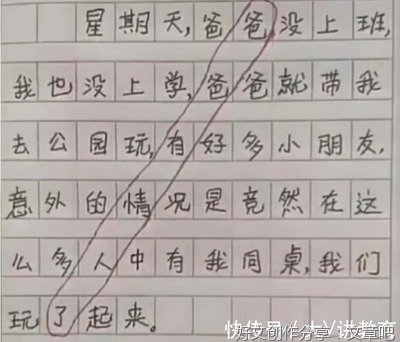 星期天,爸爸没上班,
我也没上学,爸爸就带我
去公园玩,有好多小朋友,
意外的情况是竟然在这
么多人中有我同桌,我们
玩了起来。